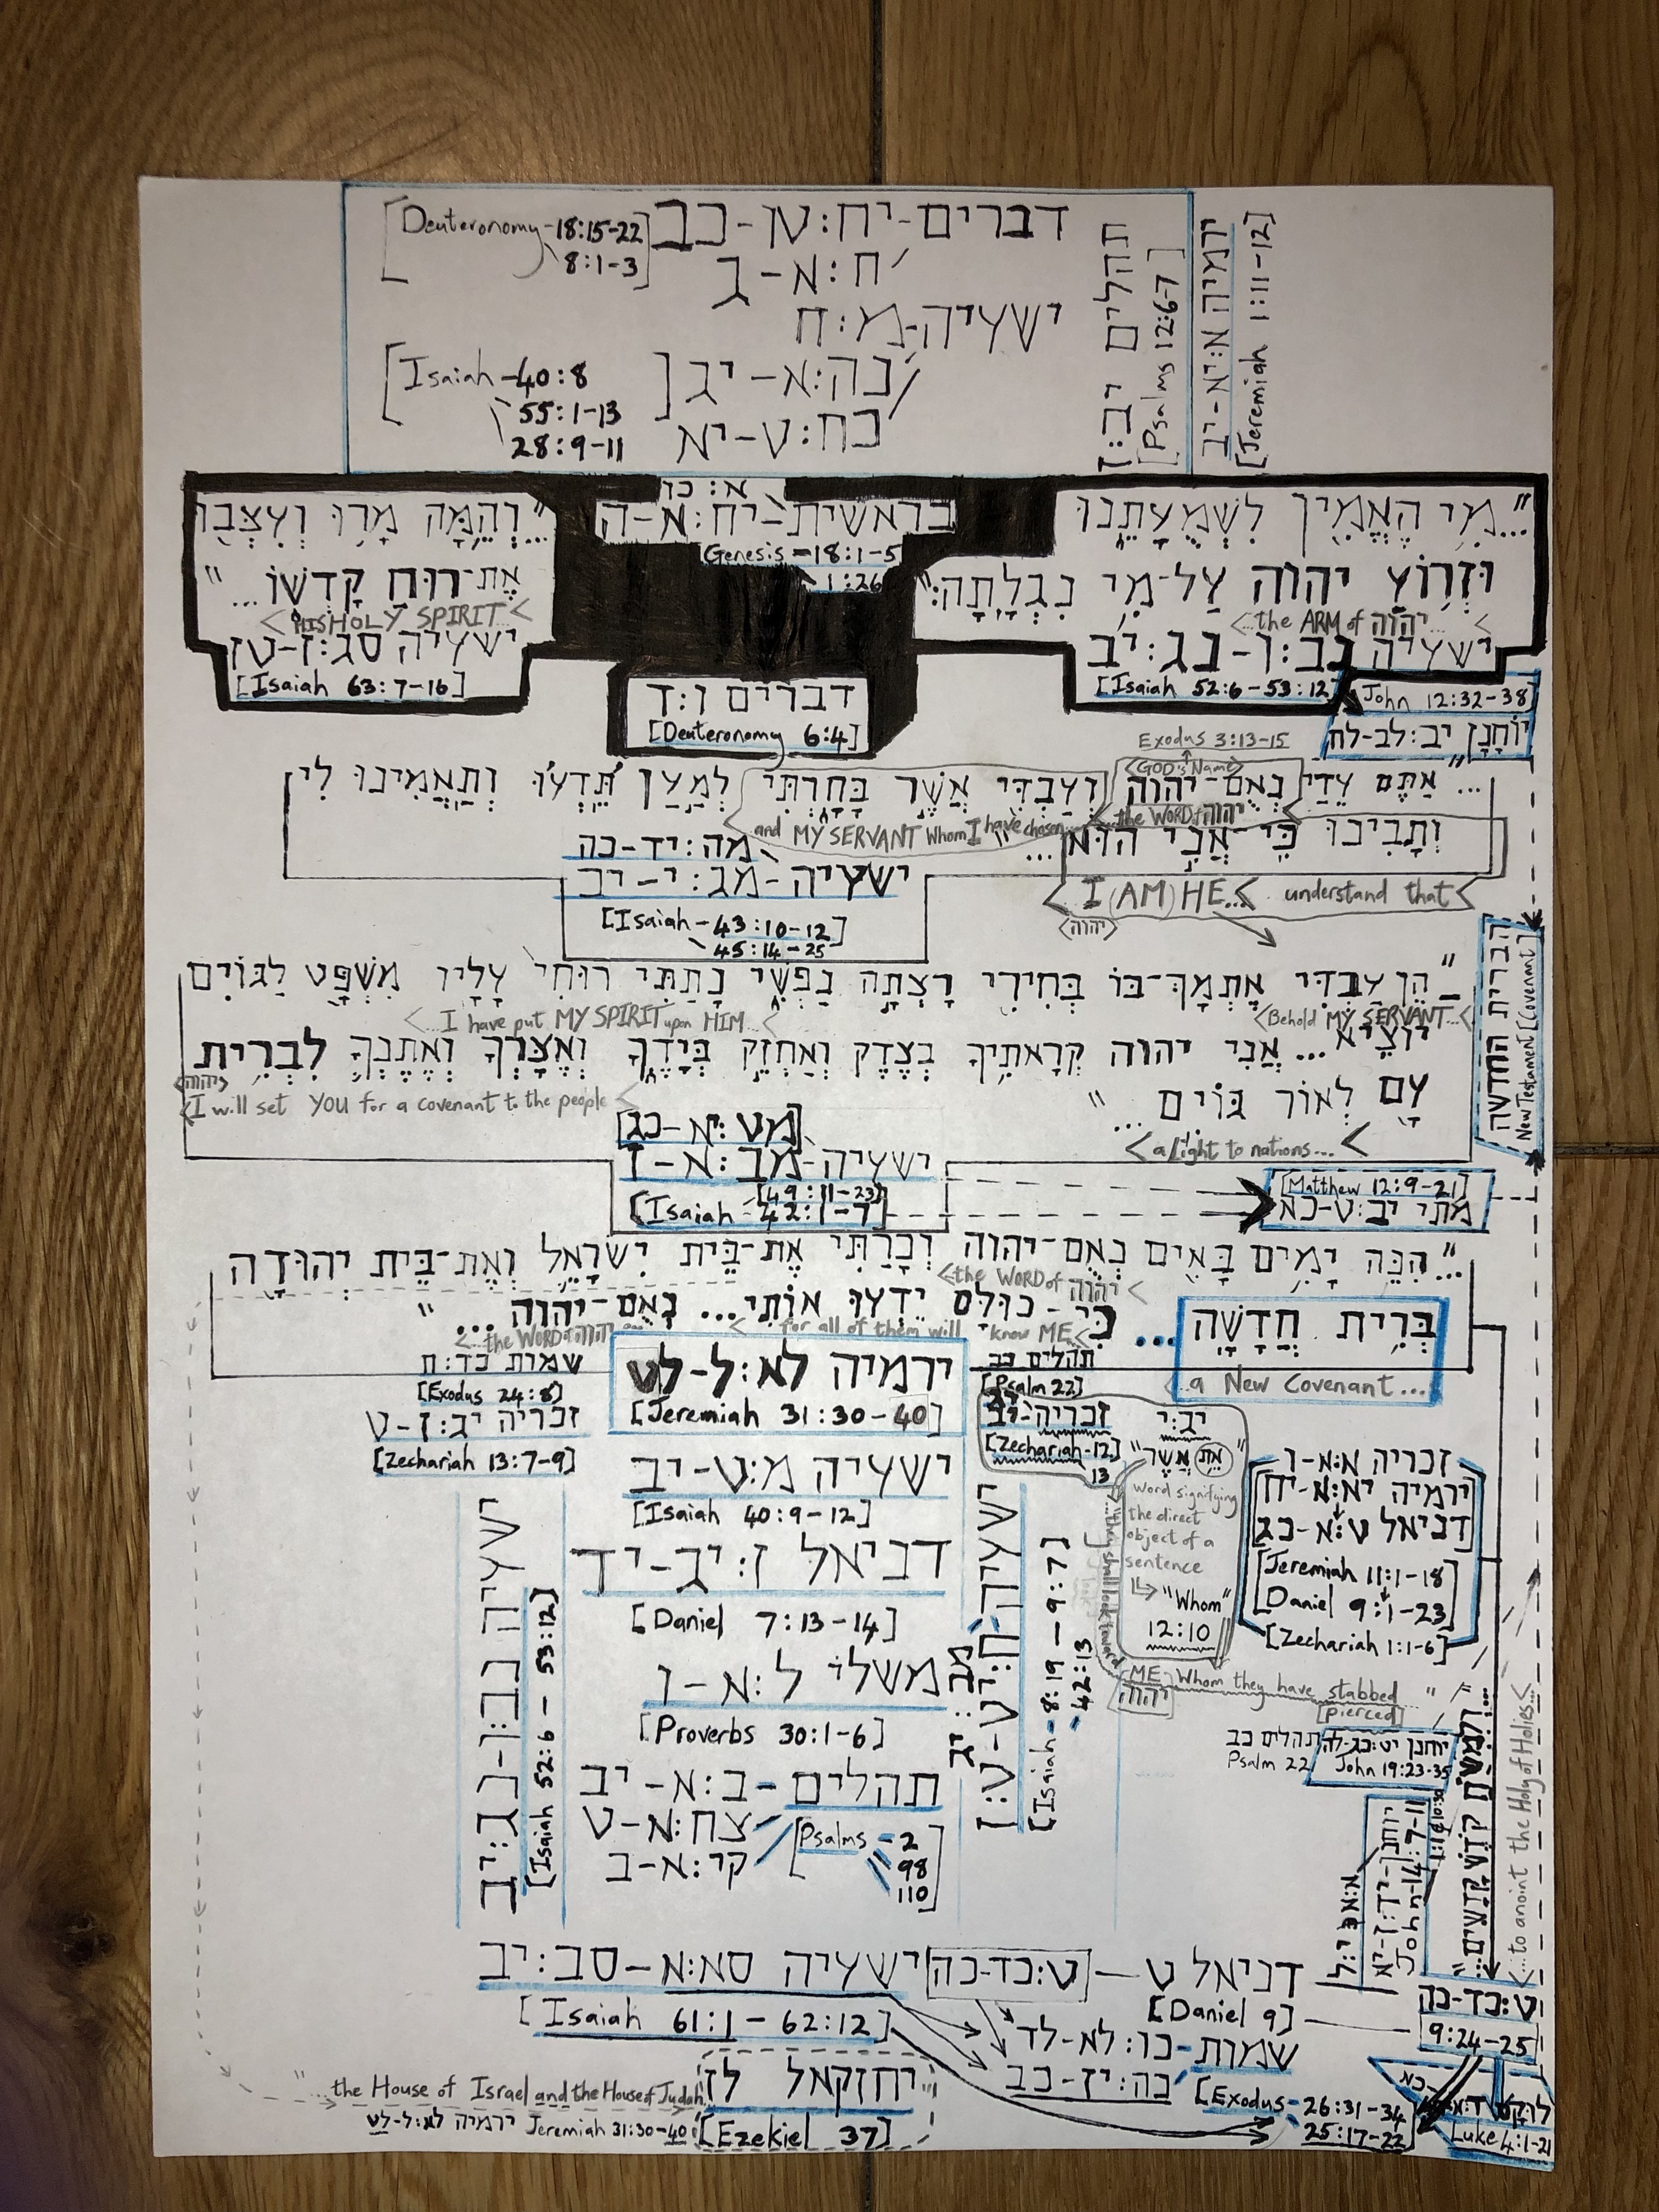 [Deuteronomy-18:15-22] דברים-יח:טו-כב
8:1-3 ח:א-ג
ישעיה-מ:ח
[Isaiah-40:8] נה:א-יג
55:1-13
28:9-11 כח:ט-יא
תהלים יב:ז
[Psalms 12:6-7]
ירמיה א:יא-יב
[Jeremiah 1:11-12]
"...מִי הֶאֱמִין לִשְׁמֻעָתֵנוּ
וּזְרוֹעַ יהוה עַל־מִי נִגְלָתָה:"
<...the ARM of יהוה... <
ישעיה נב:ו-נג:יב
[Isaiah 52:6-53:12]
John 12:32-38
יוֹחָנָן יב:לב-לח
א:כו
בראשית-יח:א-ה
Genesis-18:1-5
1:26
"...וְהֵמָּה מָרוּ וְעִצְּבוּ
אֶת־רוּחַ קָדְשׁוֹ..."
<HIS HOLY SPIRIT<
ישעיה סג:ז-טז
[Isaiah 63:7-16]
דברים ו:ד
[Deuteronomy 6:4]
Exodus 3:13-15
<GOD's Name>
"...אַתֶּם עֵדַי נְאֻם־יהוה וְעַבְדִּי אֲשֶׁר בָּחָרְתִּי לְמַעַן תֵּדְעוּ וְתַאֲמִינוּ לִי
<the WORD of יהוה
<and MY SERVANT whom I have chosen...
וְתָבִינוּ כִּי־אֲנִי הוּא..."
<I (AM) HE...< understand that<
<יהוה>
מה:יד-כה
ישעיה-מג:י-יב
[Isaiah-43:10-12]
45:14-25
הברית החדשה
New Testament [Covenant]
"הֵן עַבְדִּי אֶתְמָךְ־בּוֹ בְּחִירִי רָצְתָה נַפְשִׁי נָתַתִּי רוּחִי עָלָיו מִשְׁפָּט לַגּוֹיִם
<Behold MY SERVANT...<
<...I have put MY SPIRIT upon HIM...<
יוֹצִיא...אֲנִי יהוה קְרָאתִיךָ בְצֶדֶק וְאַחְזֵק בְּיָדֶךָ וְאֶצָּרְךָ וְאֶתֶּנְךָ לִבְרִית
<יהוה>
<I will set YOU for a covenant to the people<
עָם לְאוֹר גּוֹיִם..."
<a light to nations...<
מט:יא-כג
ישעיה-מב:א-ז
[49:11-23]
[Isaiah-42:1-7]
[Matthew 12:9-21]
מתי יב:ט-כא
"...הִנֵּה יָמִים בָּאִים נְאֻם־יהוה וְכָרַתִּי אֶת־בֵּית יִשְׂרָאֵל וְאֶת־בֵּית יְהוּדָה
<the WORD of יהוה<
בְּרִית חֲדָשָׁה... כִּי-כוּלָּם יֵדְעוּ אוֹתִי...נְאֻם־יהוה..."
<...a New Covenant...
<...for all of them will know ME<
<...the WORD of יהוה
ירמיה לא:ל-לט
[Jeremiah 31:30-40]
שמות כד:ח
[Exodus 24:8]
זכריה יג:ז-ט
[Zechariah 13:7-9]
תהלים כב
[Psalm 22]
זכריה-יב
[Zechariah-12]
13
יב:י
"אֵת אֲשֶׁר"
word signifying
the direct
object of a
sentence
"Whom"
12:10
"...they shall look toward
ME Whom they have stabbed..."
יהוה [pierced]
זכריה א:א-ו
ירמיה יא:א-יח
דניאל ט:א-כג
[Jeremiah 11:1-18]
[Daniel 9:1-23]
[Zechariah 1:1-6]
ישעיה מ:ט-יב
[Isaiah 40:9-12]
דניאל ז:יג-יד
[Daniel 7:13-14]
משלי ל:א-ו
[Proverbs 30:1-6]
תהלים-ב:א-יב
צח:א-ט
קי:א-ב
[Psalms-2
98
110]
ישעיה נב:ו-נג:יב
[Isaiah 52:6-53:12]
ישעיה-ח:יט-ט:ו
מב:יג
[Isaiah-8:19-9:7]
-42:13
תהלים כב
Psalm 22
יוחנן יט:כג-לה
John 19:23-35
יוחנן-יד:ז-יא
John-14:7-11
10:30
"...וְלִמְשֹׁחַ קֹדֶשׁ קָדָשִׁים..."
<...to anoint the Holy of Holies...<
דניאל ט - ט:כד-כה
[Daniel 9]
ט:כד-כה
9:24-25
ישעיה סא:א-סב:יב
[Isaiah 61:1-62:12]
שמות-כו:לא-לד
כה:יז-כב
[Exodus-26:31-34
25:17-22]
Luke 4:1-21
יחזקאל לז
[Ezekiel 37]
"...the House of Israel and the House of Judah
ירמיה לא:ל-לט Jeremiah 31:30-40